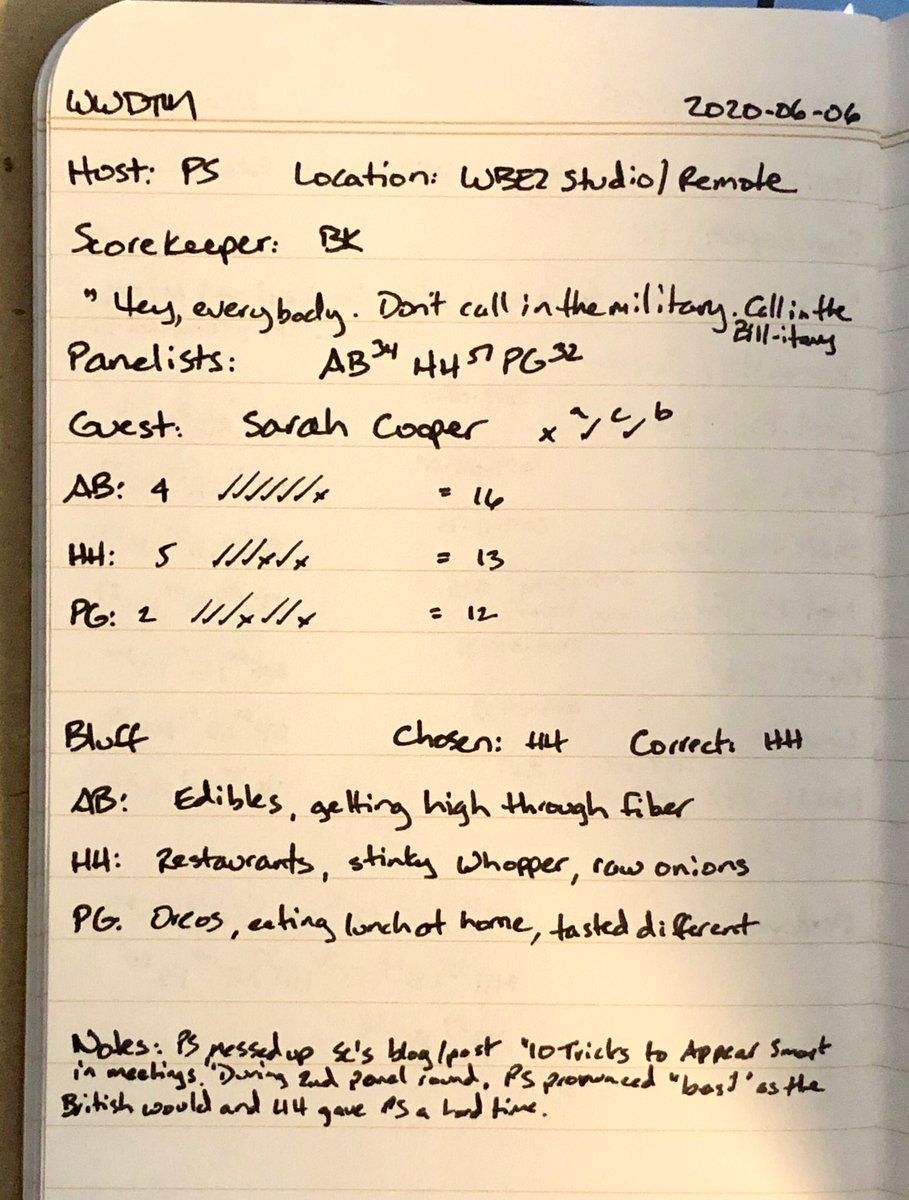 WWDTM 2020-06-06
Host: PS Location: WBEZ Studio/Remote
Scorekeeper: BK
"Hey, everybody. Don't call in the military. Call in the
Bill-itary
Panelists: AB34 HH57 PG32
Guest: Sarah Cooper xa ✓c ✓b
AB: 4 ✓✓✓✓✓✓x = 16
HH: 5 ✓✓✓x✓x = 13
PG: 2 ✓✓✓x✓✓x = 12
Bluff Chosen: HH Correct: HH
AB: Edibles, getting high through fiber
HH: Restaurants, stinky Whopper, raw onions
PG. Oreos, eating lunch at home, tasted different
Notes: PS messed up SC's blog/post "10 Tricks to Appear Smart
in meetings." During 2nd panel round, PS pronunced as the
British would and HH gave PS a hard time.